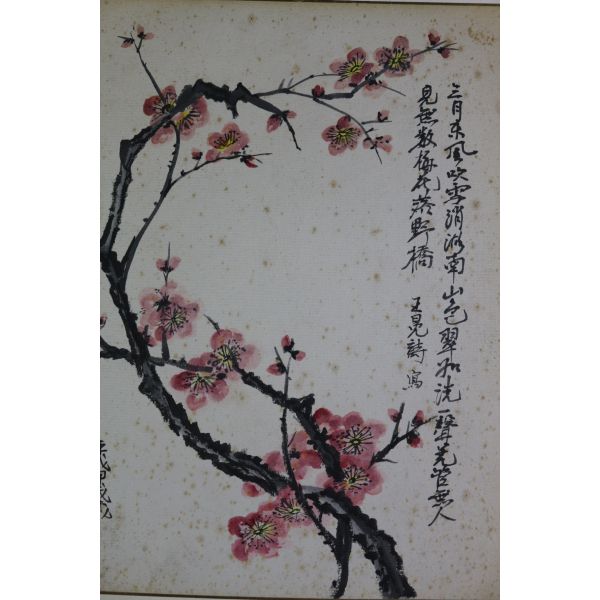 三月東風吹雪消湖南山色翠如洗一聲羌管無人
見無數梅花落野橋
王冕詩 寫